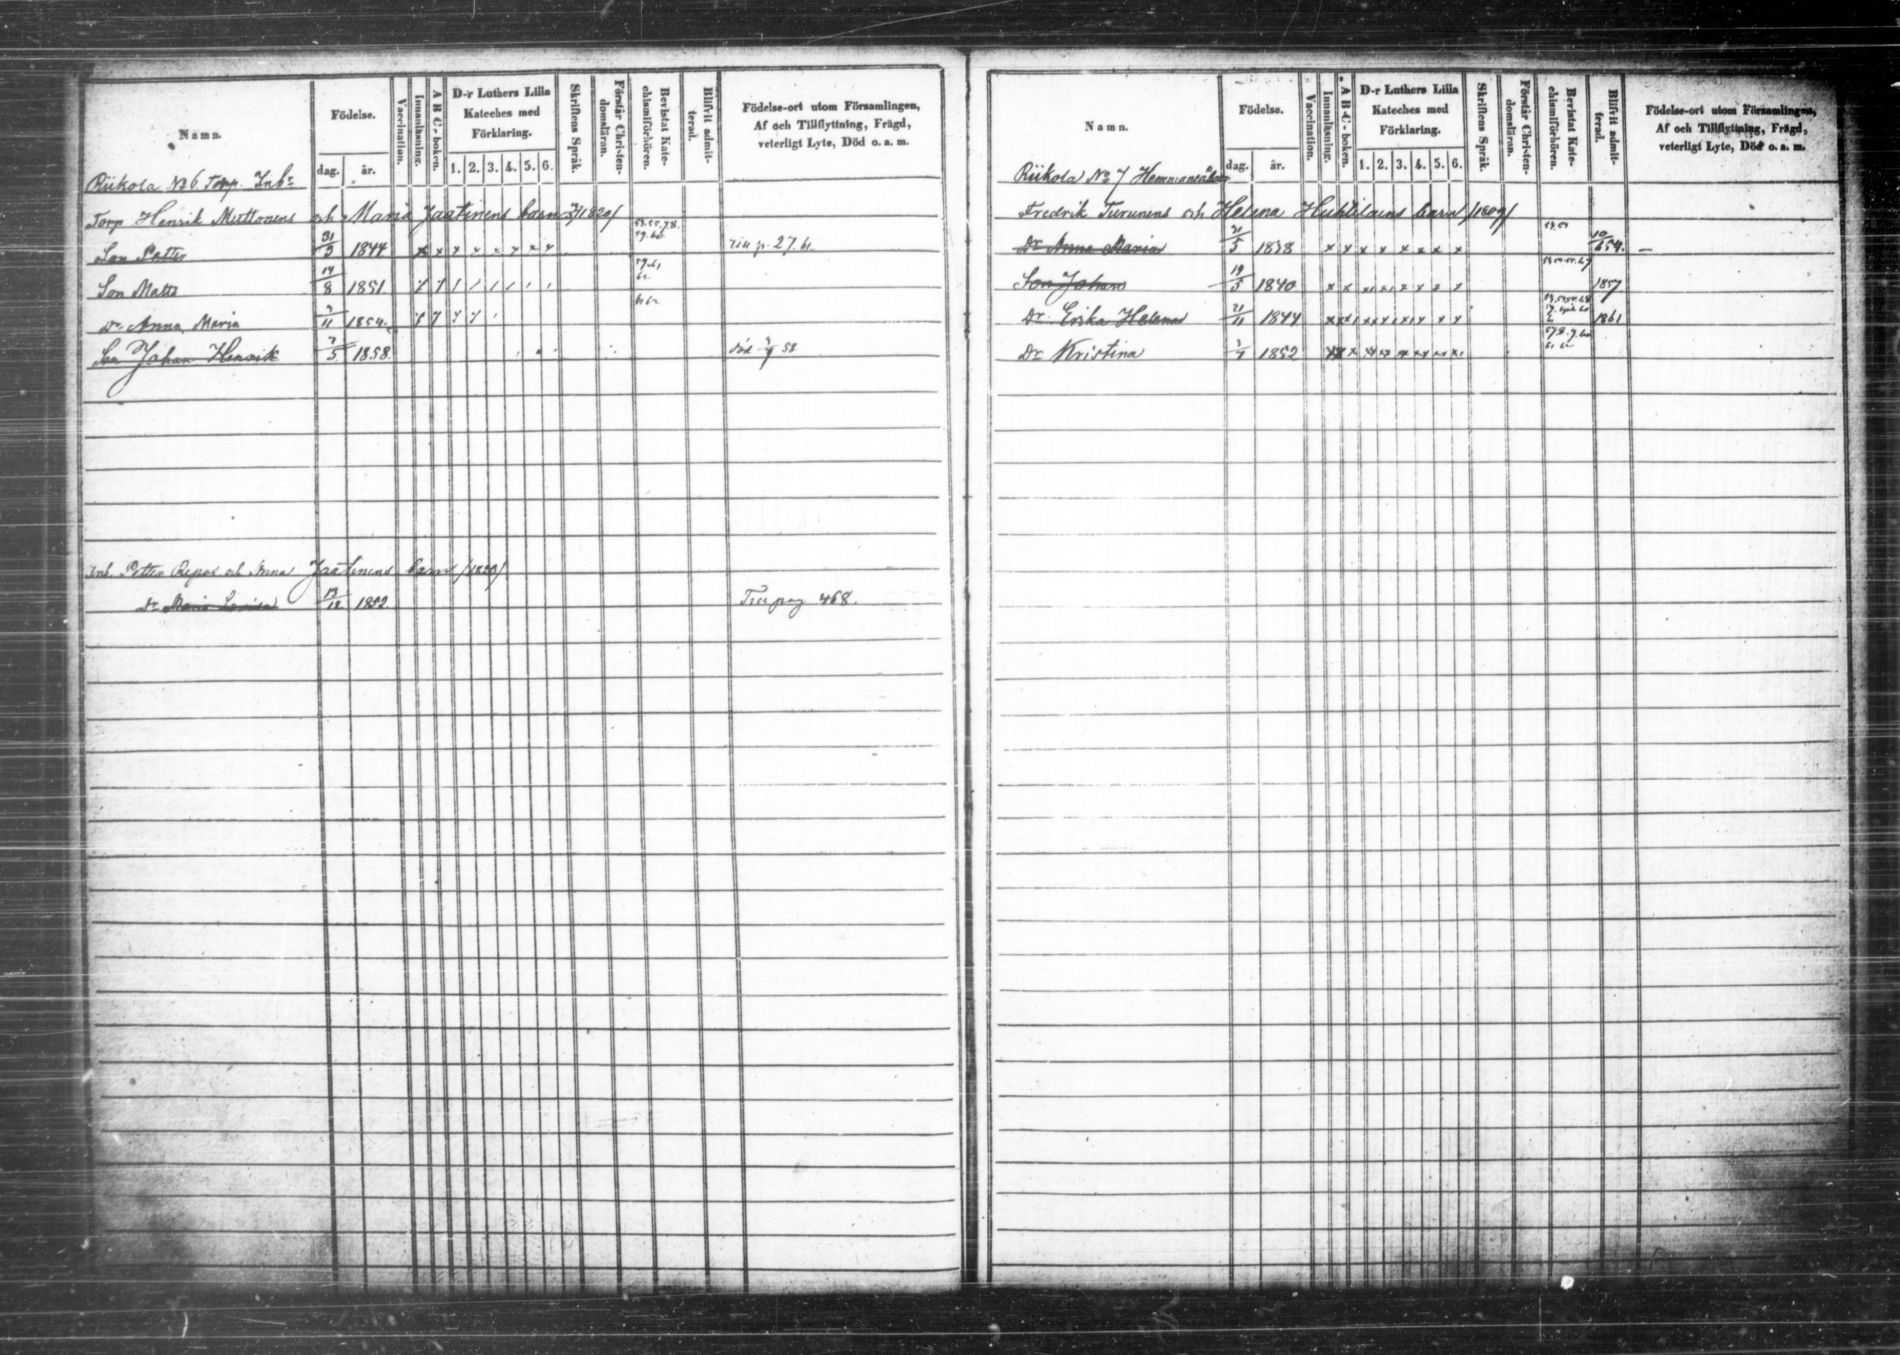 Namn.
Födelse.
dag. år.
Vaccination.
Innanläsning.
A B C - boken.
D-r Luthers Lilla Kateches med Förklaring.
1. 2. 3. 4. 5. 6.
Skriftens Språk.
Förstår Christendomsläran.
Bevistat Katechismiförhören.
Blifvit admitterad.
Födelse-ort utom Församlingen,
Af och Tillflyttning, Frägd,
veterligt Lyte, Död o. a. m.
Riikola No 6. Torp. Inhs
Torp Henrik Muttonens och Maria Jaatinens barn /1820/
Son Petter 31/3 1844 x x x x x x x x p. 27.
Son Matts 14/8 1851
Dr Anna Maria 2/11 1854
Son Johan Henrik 7/5 1858 död 58
Inh. Petter Repos och Anna Jaatinens barn /1850/
Dr Maria Lovisa 19/12 1852 Tr. pag 468.
Namn.
Födelse.
dag. år.
Vaccination.
Innanläsning.
A B C - boken.
D-r Luthers Lilla Kateches med Förklaring.
1. 2. 3. 4. 5. 6.
Skriftens Språk.
Förstår Christendomsläran.
Bevistat Katechismiförhören.
Blifvit admitterad.
Födelse-ort utom Församlingen,
Af och Tillflyttning, Frägd,
veterligt Lyte, Död o. a. m.
Riikola No 7
Fredrik Turunens och Helena Huhtilains barn /1809/
Dr Anna Maria 21/5 1838 x x x x x x x x 10/6 54.
Son Johan 19/5 1840 x x x x x x x x 1857
Dr Erika Helena 21/11 1844 1861
Dr Kristina 1852